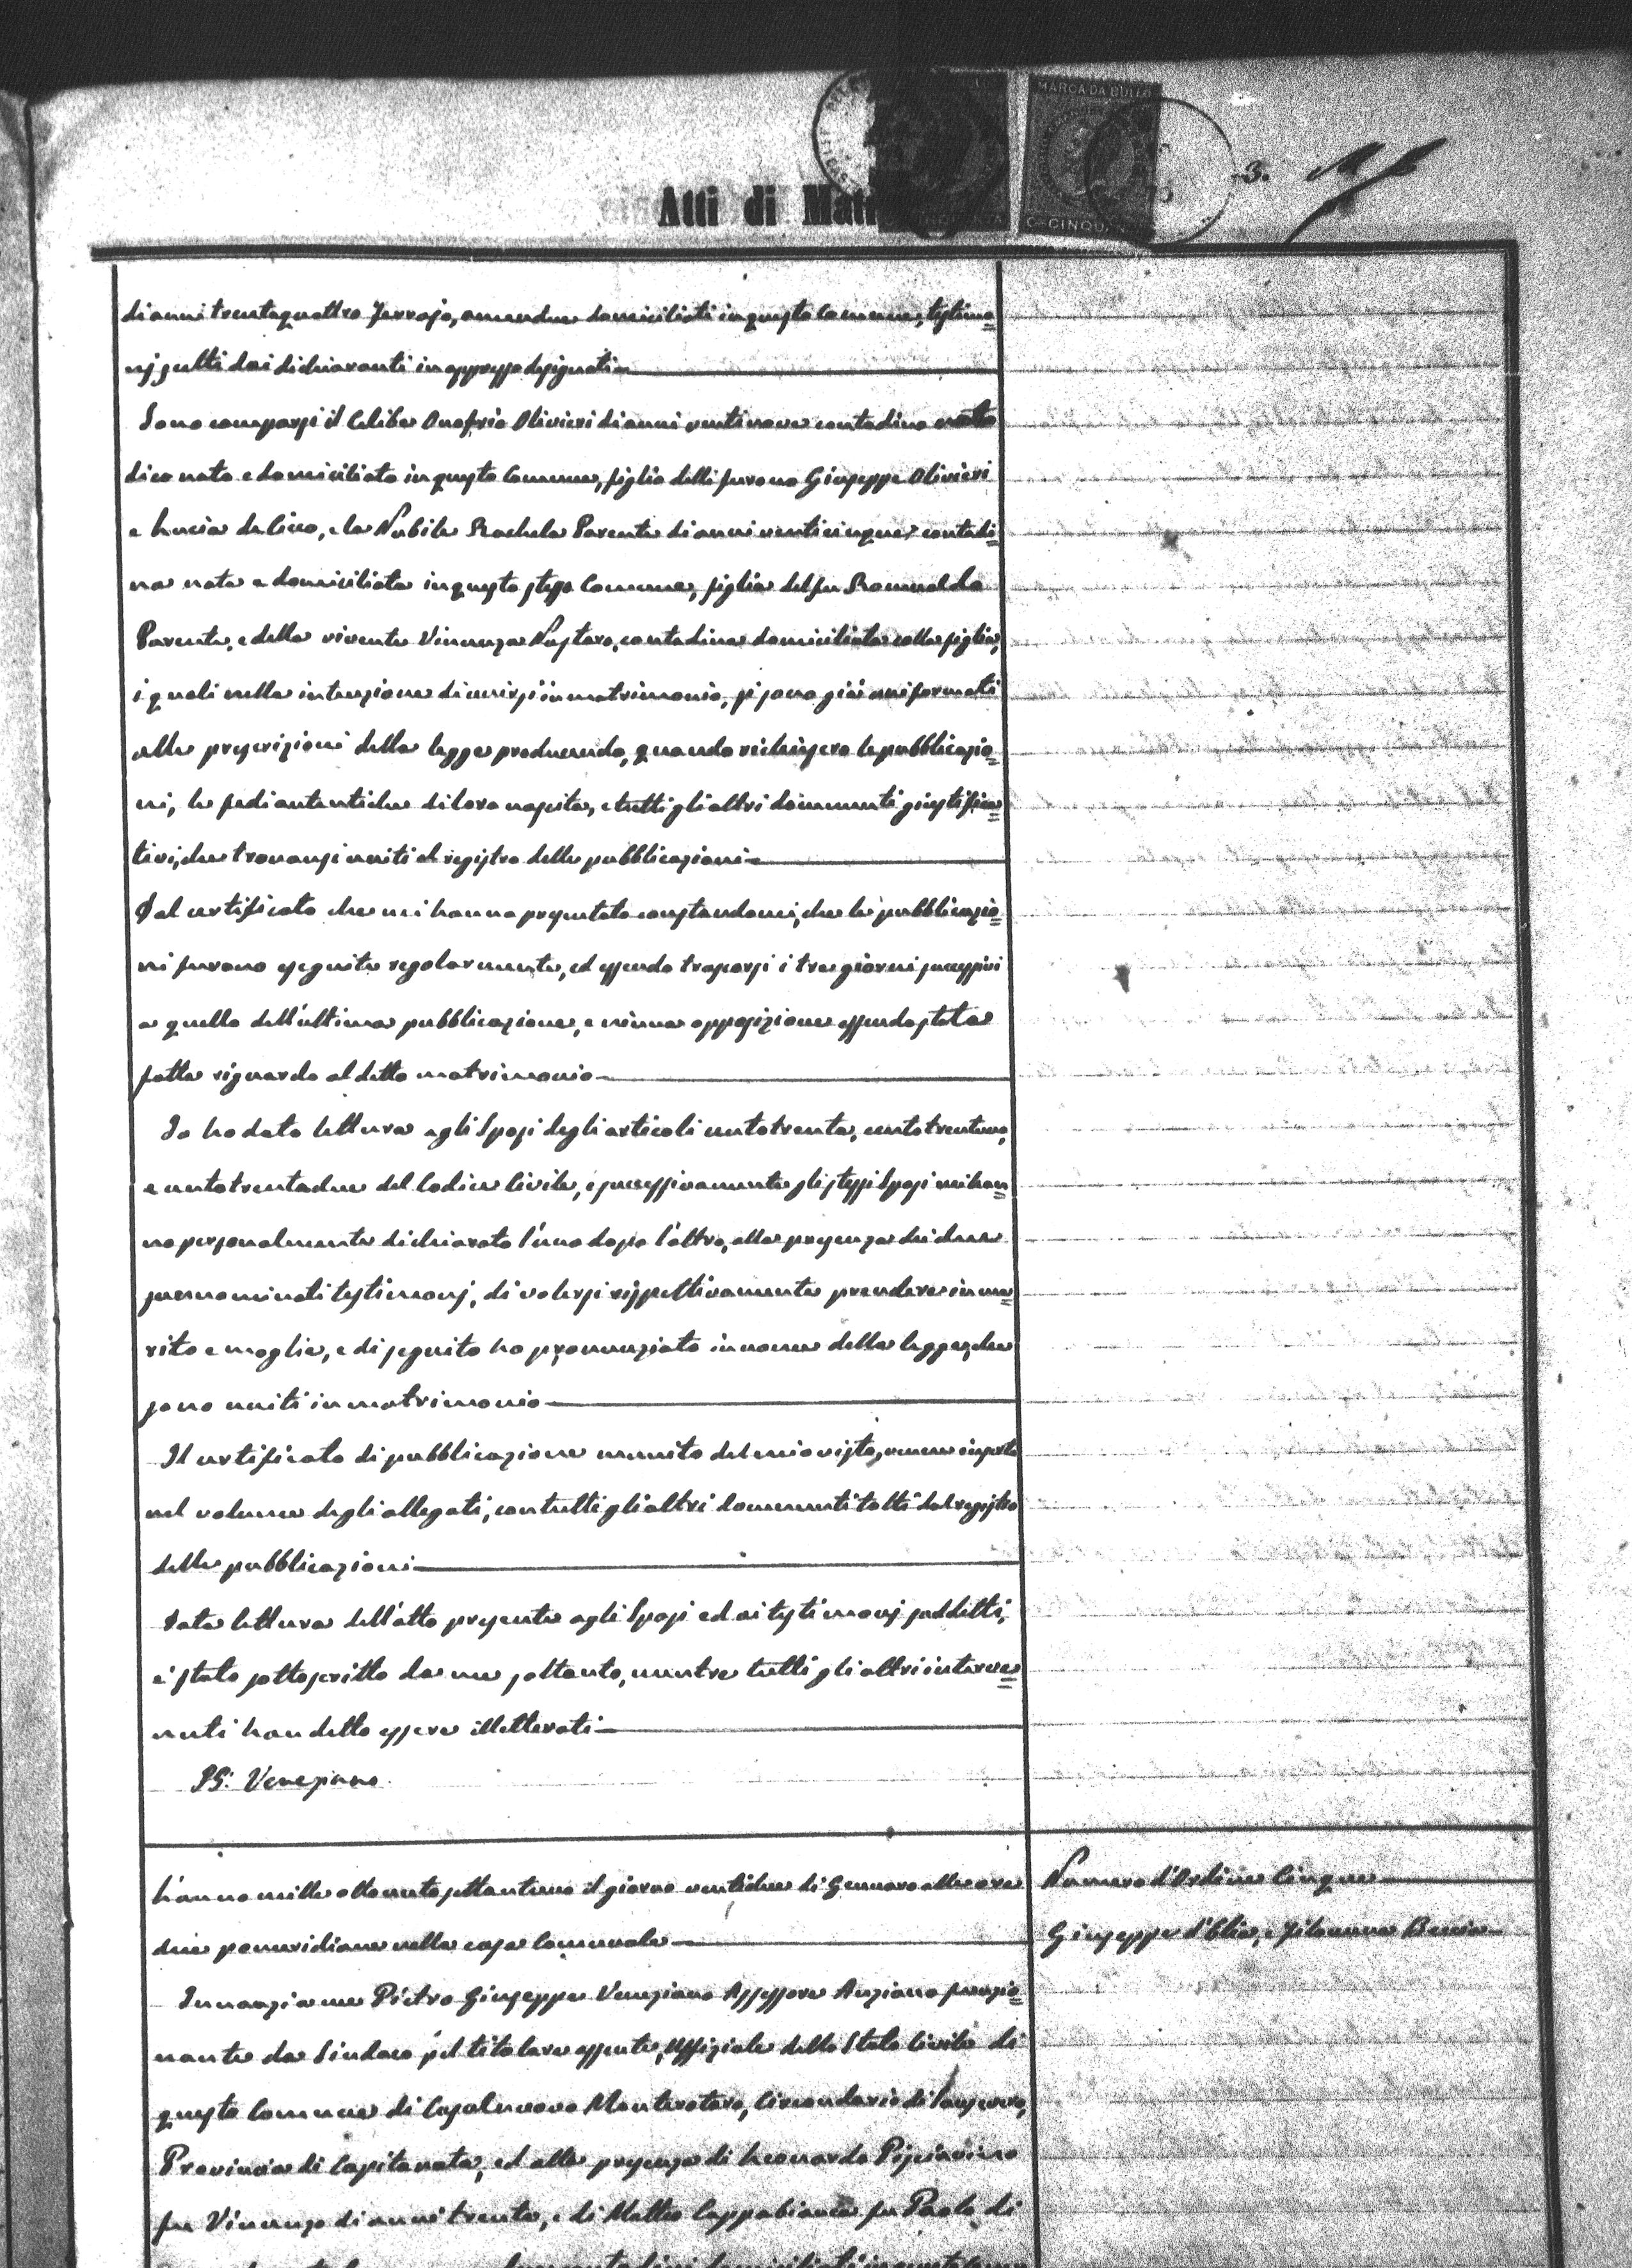 MARCA DA BOLLO
C. CINQU
3.
Atti di Mat
di anni trentaquattro Ferrajo, amendue domiciliati in questo Comune, testimo=
nj scelti dai dichiaranti in appresso designati
Sono comparsi il Celibe Onofrio Olivieri di anni ventinove contadino nato
dico nato e domiciliato in questo Comune, figlio delli furono Giuseppe Olivieri
e Lucia de Cicco, e la Nubile Rachela Parente di anni venticinque contadi=
na nata e domiciliata in questo stesso Comune, figlia del fu Romualdo
Parente, e della vivente Vincenza Nastaro, contadina domiciliata colla figlia,
i quali nella intenzione di unirsi in matrimonio, si sono già uniformati
alle prescrizioni della legge producendo, quando richiesero le pubblicazio=
ni, le fedi autentiche di loro nascita, e tutti gli altri documenti giustifica=
tivi, che trovansi uniti al registro delle pubblicazioni
Dal certificato che mi hanno presentato constandomi, che le pubblicazio=
ni furono eseguite regolarmente, ed essendo trascorsi i tre giorni successivi
a quello dell'ultima pubblicazione, e niuna opposizione essendo stata
fatta riguardo al detto matrimonio
Io ho dato lettura agli Sposi degli articoli centotrenta, centotrentuno,
e centotrentadue del Codice Civile, e successivamente gli stessi Sposi mi han=
no personalmente dichiarato l'uno dopo l'altro, alla presenza dei due
prenominati testimonj, di volersi rispettivamente prendere in ma=
rito e moglie, e di seguito ho pronunziato in nome della legge, che
sono uniti in matrimonio
Il certificato di pubblicazione munito del mio visto, venne inserto
nel volume degli allegati, con tutti gli altri documenti tolti dal registro
delle pubblicazioni
Data lettura dell'atto presente agli Sposi ed ai testimonj suddetti,
è stato sottoscritto da me soltanto, mentre tutti gli altri interve=
nuti han detto essere illetterati
P.G. Veneziano
L'anno mille ottocento settantuno il giorno ventidue di Gennaro alle ore
due pomeridiane nella casa Comunale
Numero d'Ordine Cinque
Giuseppe d'Elia, e Filomena
Innanzi a me Pietro Giuseppe Veneziano Assessore Anziano funzio=
nante da Sindaco pel titolare assente, Uffiziale dello Stato Civile di
questo Comune di Casalnuovo Monterotaro, Circondario di Sansevero,
Provincia di Capitanata, ed alla presenza di Leonardo Pisciarino
fu Vincenzo di anni trenta, e di Matteo Cappabianca fu Paolo di